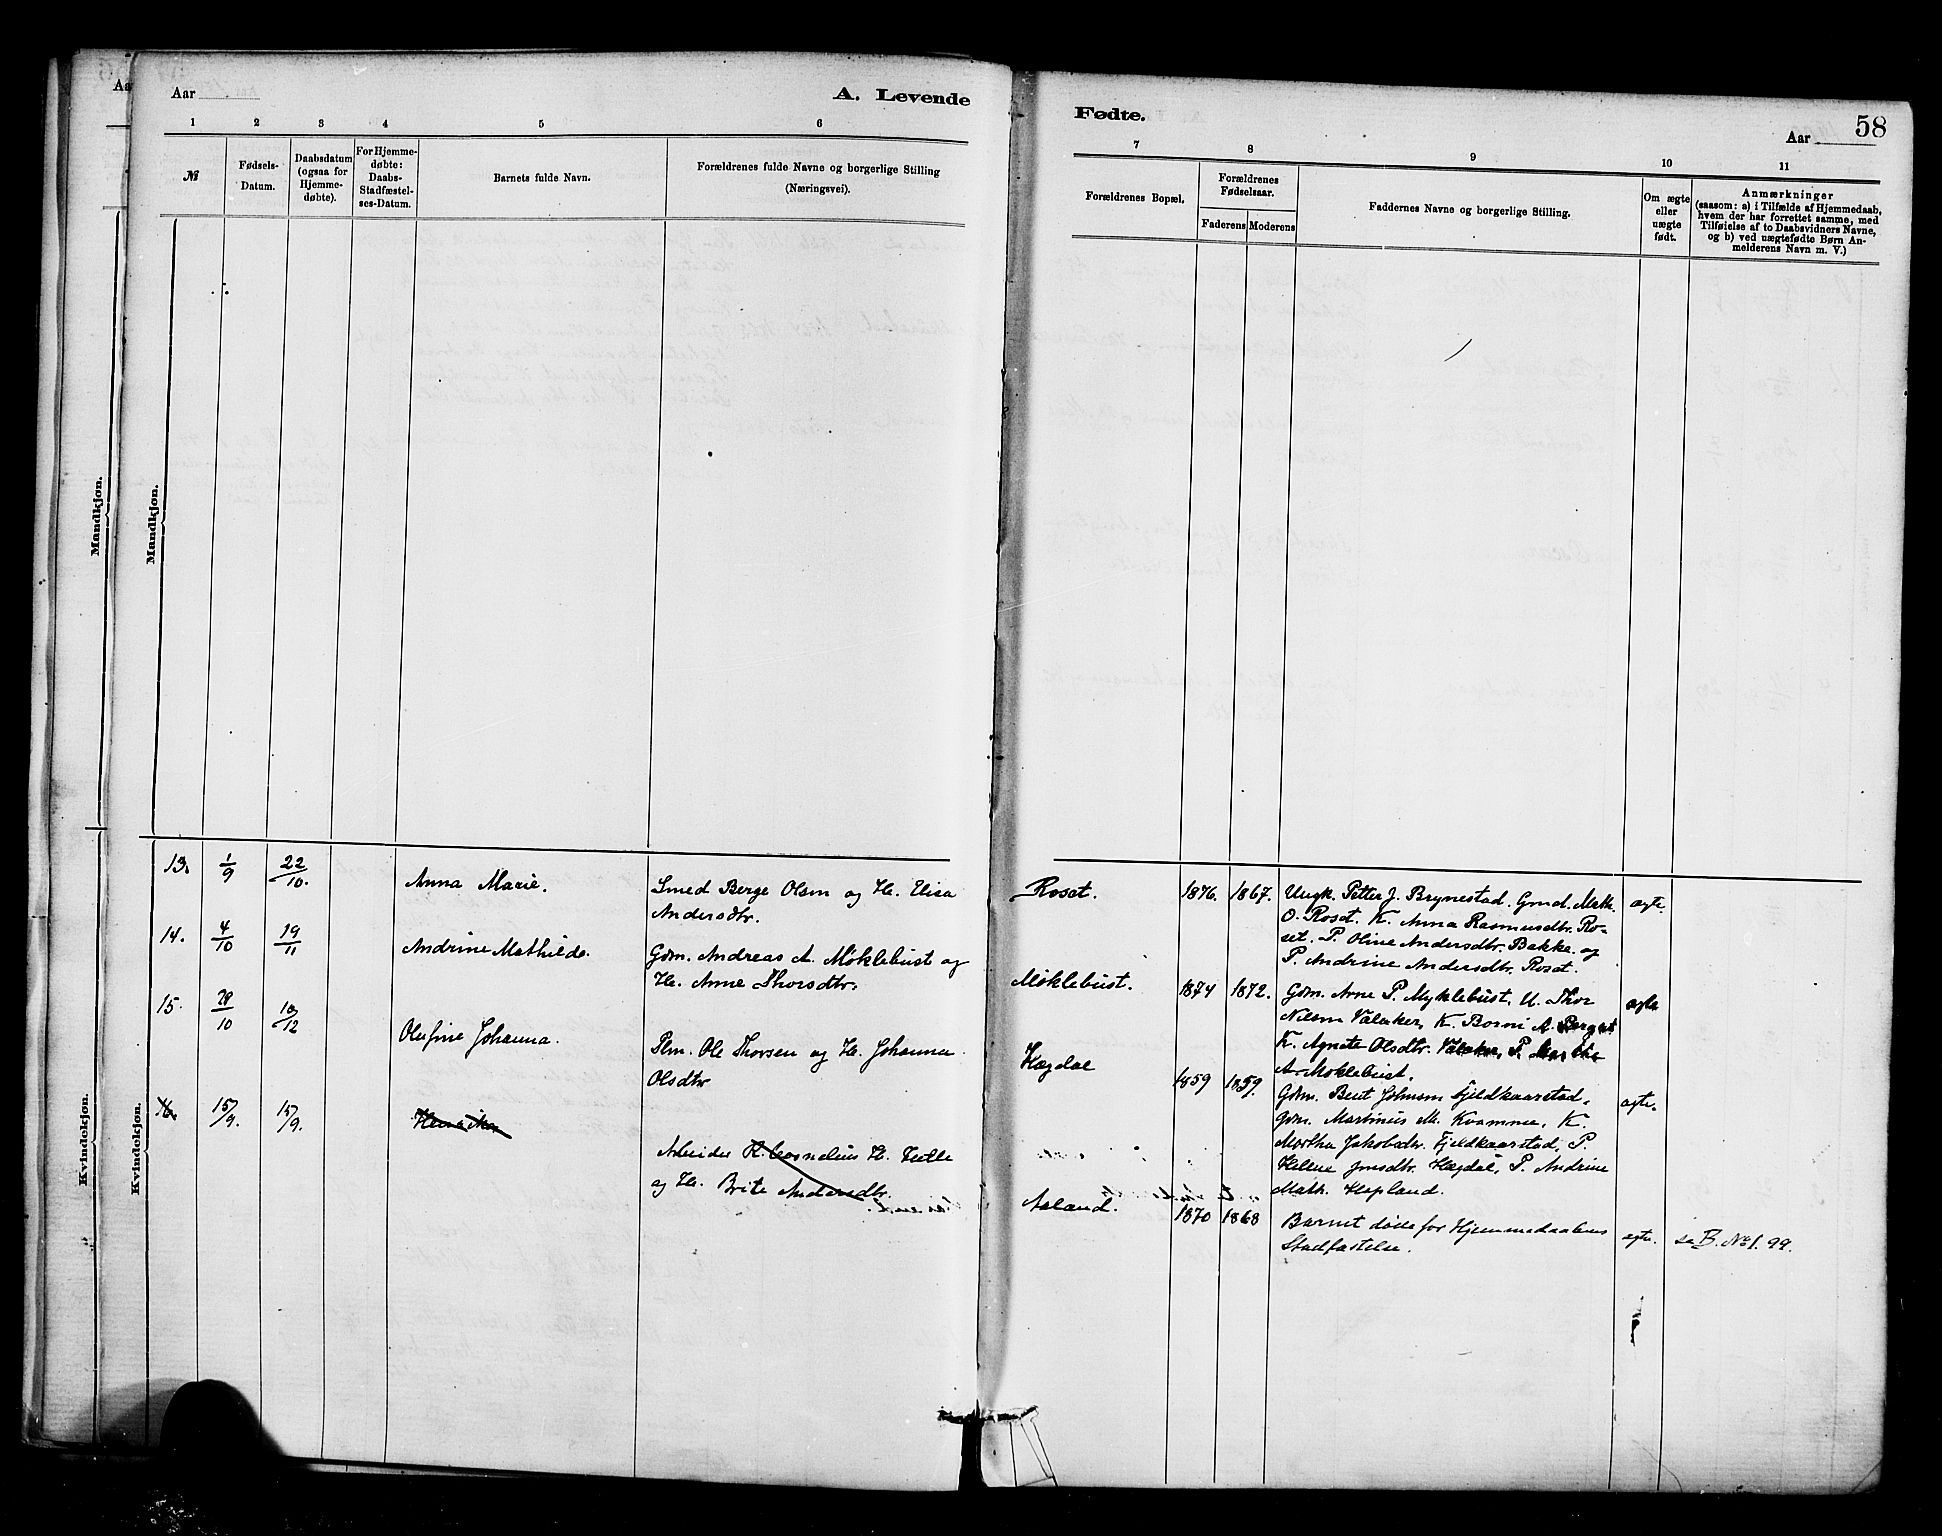 Aar
A. Levende
Fødte.
Aar
58
1 2 3 4 5 6
7 8 9 10 11
№
Fødsels-
Datum.
Daabsdatum
(ogsaa for
Hjemme-
døbte).
For Hjemme-
døbte:
Daabs-
Stadfæstel-
ses-Datum.
Barnets fulde Navn.
Forældrenes fulde Navne og borgerlige Stilling
(Næringsvei).
Forældrenes Bopæl.
Forældrenes
Fødselsaar.
Faderens Moderens
Faddernes Navne og borgerlige Stilling.
Om ægte
eller
uægte
født.
Anmærkninger
(saasom: a) i Tilfælde af Hjemmedaab,
hvem der har forrettet samme, med
Tilføielse af to Daabsvidners Navne,
og b) ved uægtefødte Børn An-
melderens Navn m. V.)
Mandkjøn.
Mandkjøn.
Kvindekjøn.
Kvindekjøn.
13. 1/9 22/10. Anna Marie.
Smed Berge Olsen og H. Elisa
Andersdtr.
Roset. 1876. 1867.
Ungk. Petter J. Brynestad. Gmd. Math.
O. Roset. K. Anna Rasmusdtr. Ro-
set. P. Oline Andersdtr. Bakke. og
P. Andrine Andersdtr. Roset.
ægte.
14. 4/10 19/11 Andrine Mathilde.
Gdm. Andreas A. Møklebust og
H. Anne Thorsdtr.
Møklebust. 1874 1872.
Gdm. Arne P. Myklebust, U. Thor
Nilsen Valaker, K. Borni A.
K. Agnete Olsdtr. Valaker, P. Marthe
A. Møklebust.
ægte
15. 28/10 10/12 Olufine Johanna.
Plm. Ole Thorsen og H. Johanna
Olsdtr
Hægdal 1859 1859.
Gdm. Bent Johnsen Fjeldkaarstad,
Gdm. Martinus M. Kvamme, K.
Martha Jakobsdtr. Fjeldkaarstad, P.
Helene Jonsdtr. Hægdal, P. Andrine
Math. Hopland.
ægte.
16. 15/9. 15/9.
Arbeider K. Cornelius H. Tulle
og H. Brite Andersdtr.
Aaland. 1870 1868
Barnet døde før Hjemmedaabens
Stadfæstelse.
ægte. se B. № 1. 99.